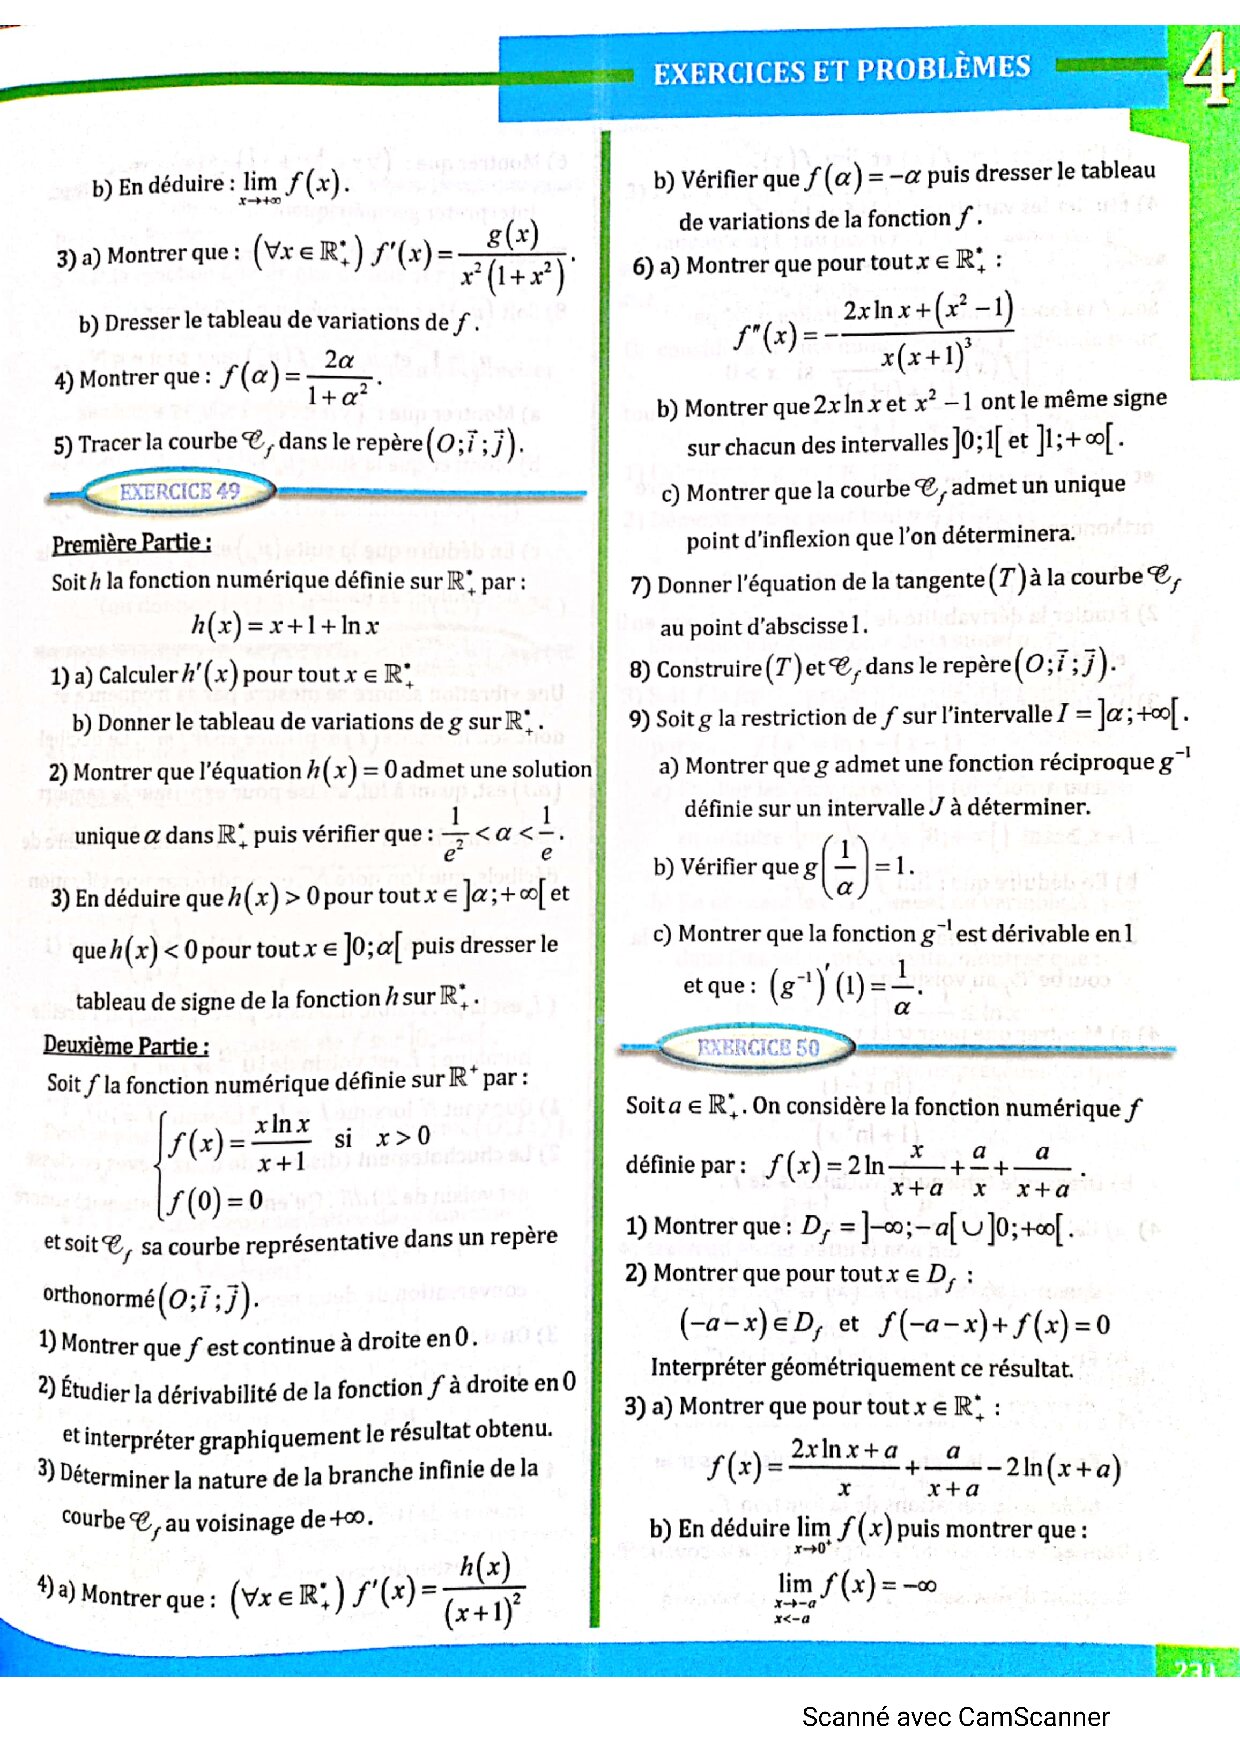 EXERCICES ET PROBLÈMES
4
b) En déduire : lim f(x).
x→+∞
3) a) Montrer que : (∀x ∈ ℝ*₊) f'(x) = g(x) / x²(1+x²).
b) Dresser le tableau de variations de f.
4) Montrer que : f(α) = 2α / 1+α².
5) Tracer la courbe 𝒞f dans le repère (O; i⃗ ; j⃗).
EXERCICE 49
Première Partie :
Soit h la fonction numérique définie sur ℝ*₊ par :
h(x) = x + 1 + ln x
1) a) Calculer h'(x) pour tout x ∈ ℝ*₊
b) Donner le tableau de variations de g sur ℝ*₊.
2) Montrer que l'équation h(x) = 0 admet une solution
unique α dans ℝ*₊ puis vérifier que : 1/e² < α < 1/e.
3) En déduire que h(x) > 0 pour tout x ∈ ]α;+∞[ et
que h(x) < 0 pour tout x ∈ ]0;α[ puis dresser le
tableau de signe de la fonction h sur ℝ*₊.
Deuxième Partie :
Soit f la fonction numérique définie sur ℝ⁺ par :
{ f(x) = x ln x / x+1 si x > 0
f(0) = 0
et soit 𝒞f sa courbe représentative dans un repère
orthonormé (O; i⃗ ; j⃗).
1) Montrer que f est continue à droite en 0.
2) Étudier la dérivabilité de la fonction f à droite en 0
et interpréter graphiquement le résultat obtenu.
3) Déterminer la nature de la branche infinie de la
courbe 𝒞f au voisinage de +∞.
4) a) Montrer que : (∀x ∈ ℝ*₊) f'(x) = h(x) / (x+1)²
b) Vérifier que f(α) = −α puis dresser le tableau
de variations de la fonction f.
6) a) Montrer que pour tout x ∈ ℝ*₊ :
f"(x) = − 2x ln x + (x² − 1) / x(x+1)³
b) Montrer que 2x ln x et x² − 1 ont le même signe
sur chacun des intervalles ]0;1[ et ]1;+∞[.
c) Montrer que la courbe 𝒞f admet un unique
point d'inflexion que l'on déterminera.
7) Donner l'équation de la tangente (T) à la courbe 𝒞f
au point d'abscisse 1.
8) Construire (T) et 𝒞f dans le repère (O; i⃗ ; j⃗).
9) Soit g la restriction de f sur l'intervalle I = ]α;+∞[.
a) Montrer que g admet une fonction réciproque g⁻¹
définie sur un intervalle J à déterminer.
b) Vérifier que g(1/α) = 1.
c) Montrer que la fonction g⁻¹ est dérivable en 1
et que : (g⁻¹)'(1) = 1/α.
EXERCICE 50
Soit a ∈ ℝ*₊. On considère la fonction numérique f
définie par : f(x) = 2 ln x/x+a + a/x + a/x+a.
1) Montrer que : Df = ]−∞;−a[ ∪ ]0;+∞[.
2) Montrer que pour tout x ∈ Df :
(−a−x) ∈ Df et f(−a−x) + f(x) = 0
Interpréter géométriquement ce résultat.
3) a) Montrer que pour tout x ∈ ℝ*₊ :
f(x) = 2x ln x + a / x + a / x+a − 2 ln(x+a)
b) En déduire lim f(x) puis montrer que :
x→0⁺
lim f(x) = −∞
x→−a
x<−a
231
Scanné avec CamScanner